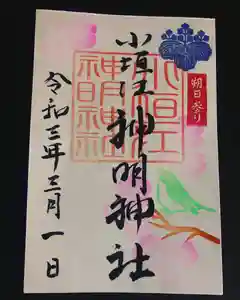 朔日参り
小垣江神明神社
令和三年三月一日
小垣江
神明神社